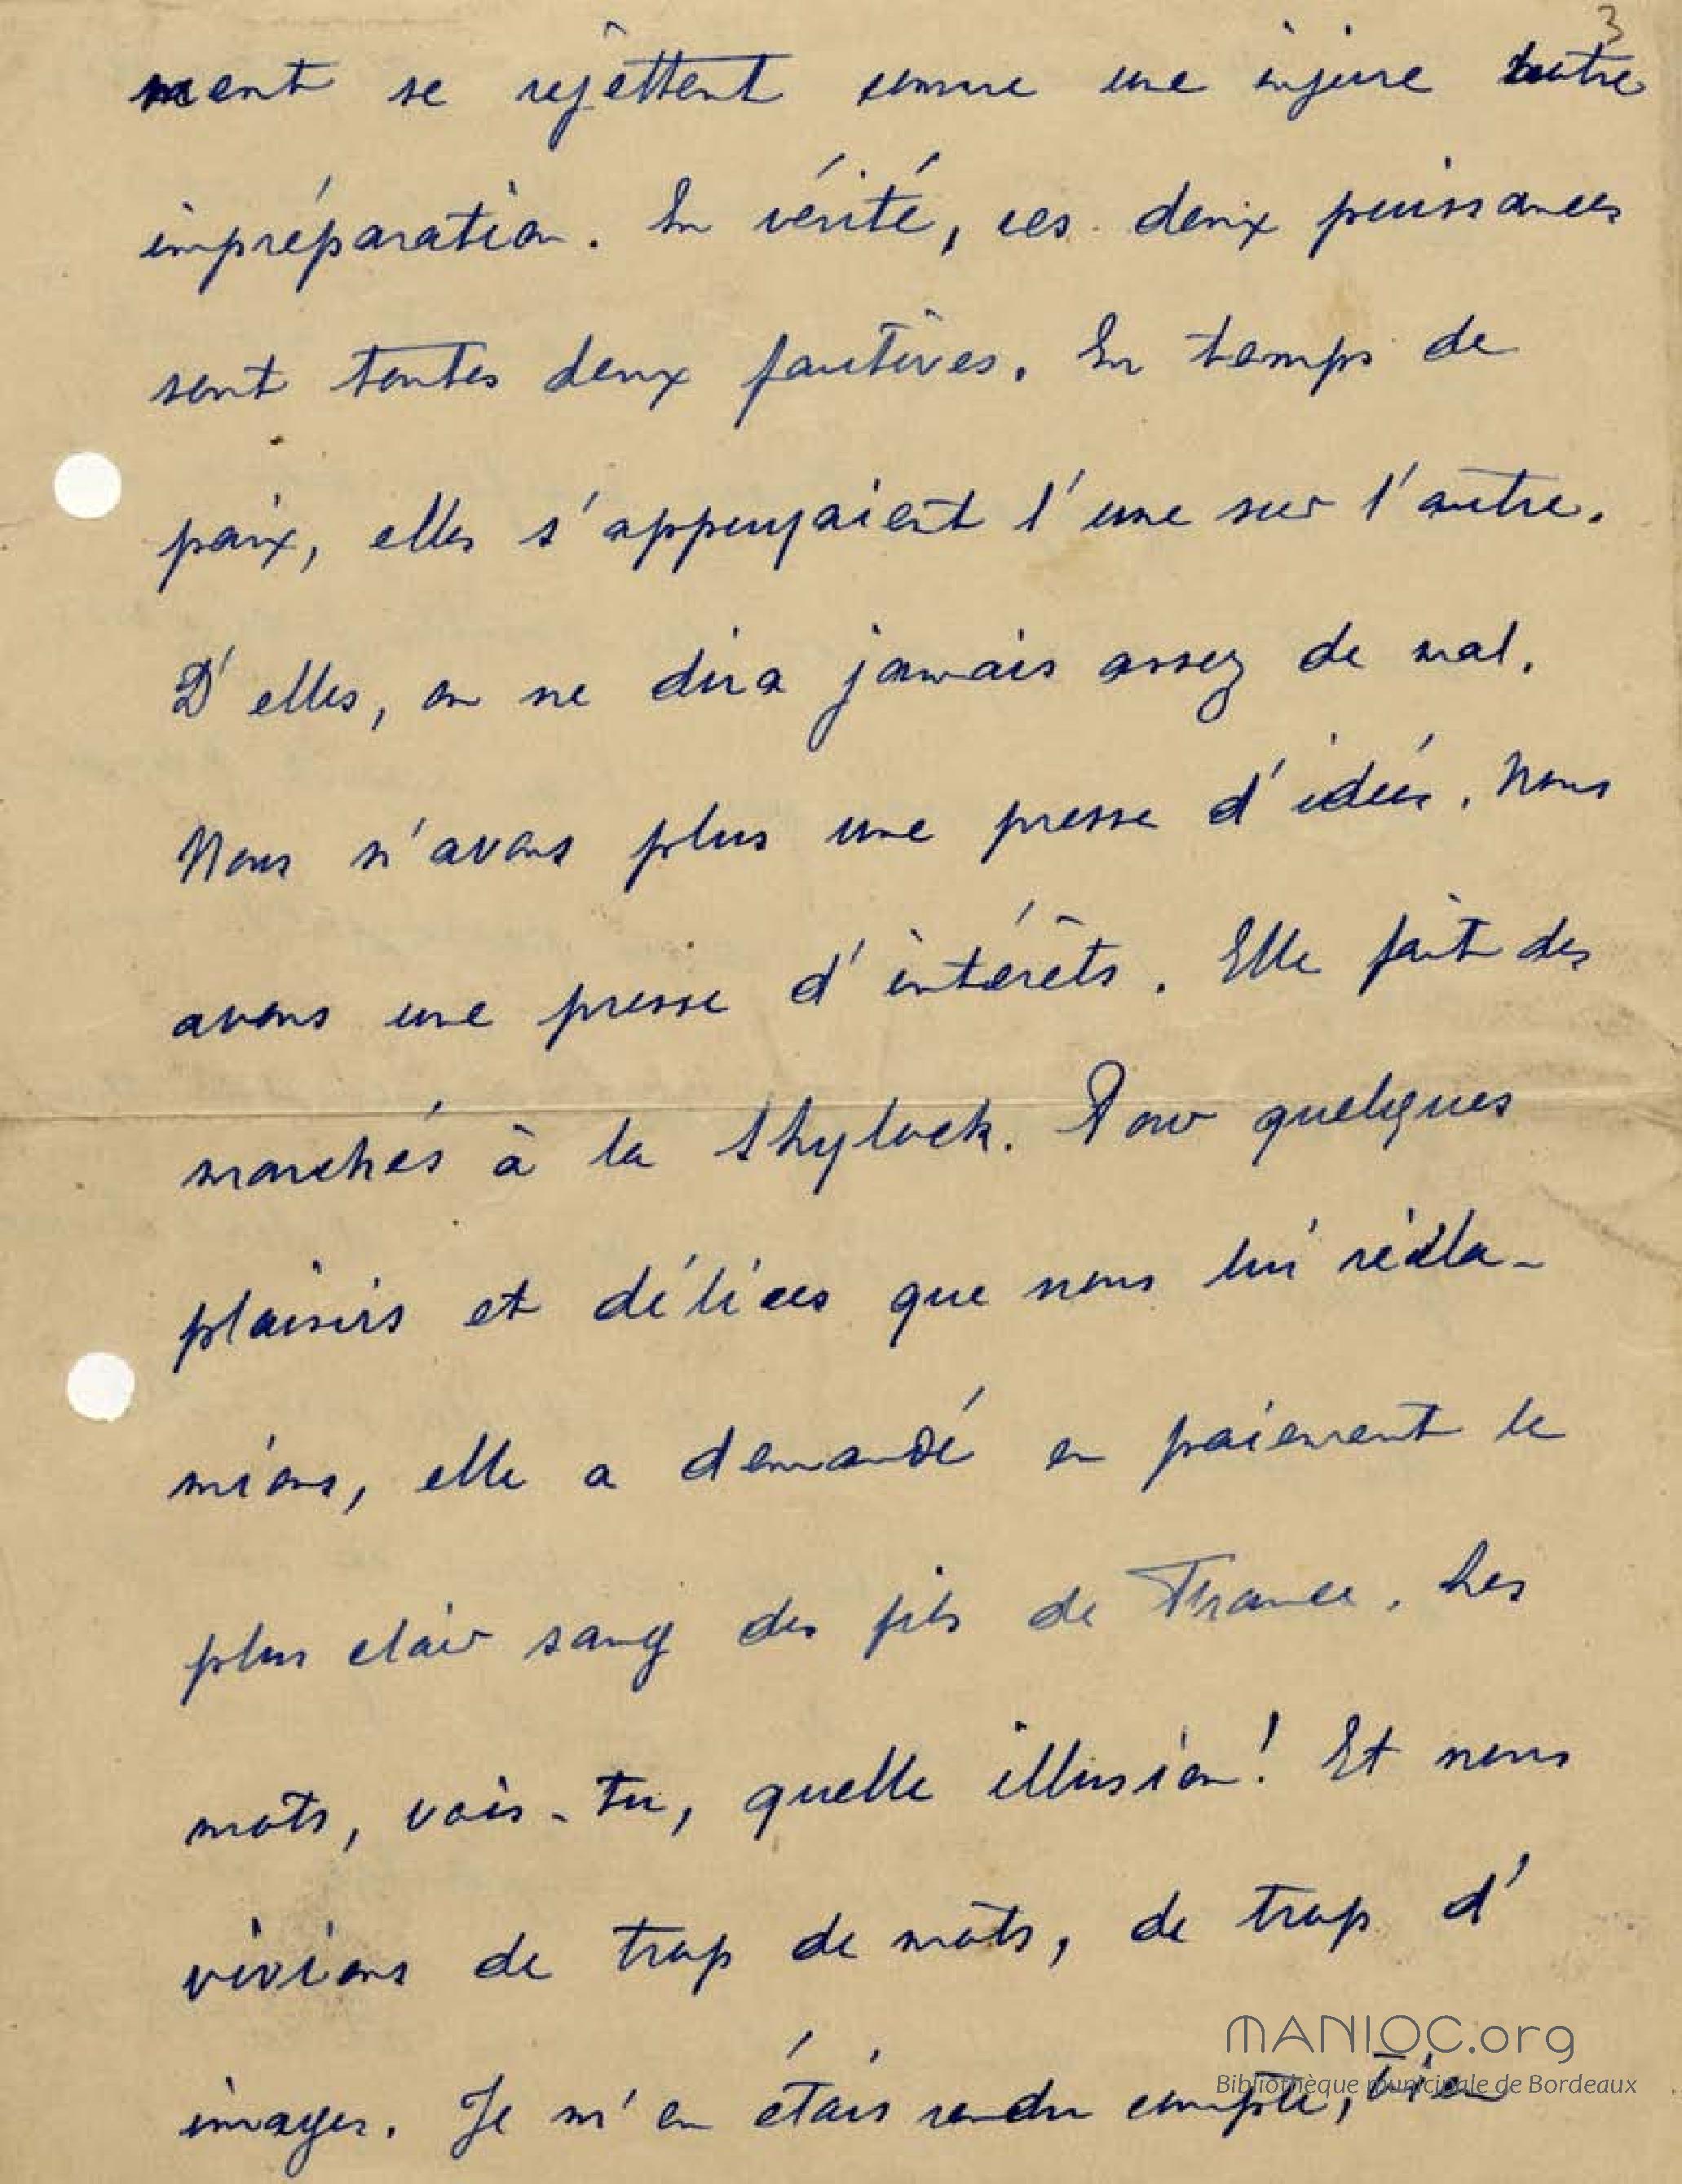 3
ment se rejettent comme une injure notre
impréparation. En vérité, ces deux puissances
sont toutes deux fautives. En temps de
paix, elles s'appuyaient l'une sur l'autre.
D'elles, on ne dira jamais assez de mal.
Nous n'avons plus une presse d'idées. Nous
avons une presse d'intérêts. Elle fait des
marchés à la Shylock. Pour quelques
plaisirs et délices que nous lui récla-
mions, elle a demandé en paiement le
plus clair sang des fils de France. Les
mots, vois-tu, quelle illusion! Et nous
vivions de trop de mots, de trop d'
images. Je m'en étais rendu compte, bien
MANIOC.org
Bibliothèque municipale de Bordeaux